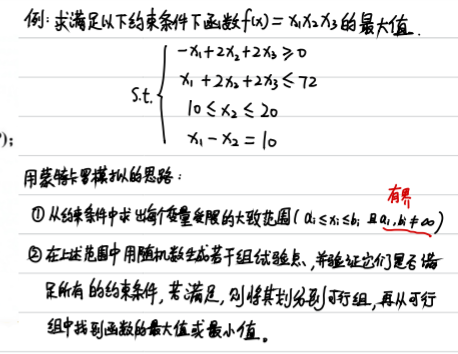 例: 求满足以下约束条件下函数f(x)= x₁x₂x₃的最大值.
s.t. { -x₁+2x₂+2x₃≥0
x₁+2x₂+2x₃≤72
10≤x₂≤20
x₁-x₂=10
);
用蒙特卡罗模拟的思路:
有界
①从约束条件中求出每个变量受限的大致范围(aᵢ≤xᵢ≤bᵢ 且aᵢ,bᵢ≠∞)
②在上述范围中用随机数生成若干组试验点、并验证它们是否满
足所有的约束条件,若满足,则将其划分到可行组,再从可行
组中找到函数的最大值或最小值。